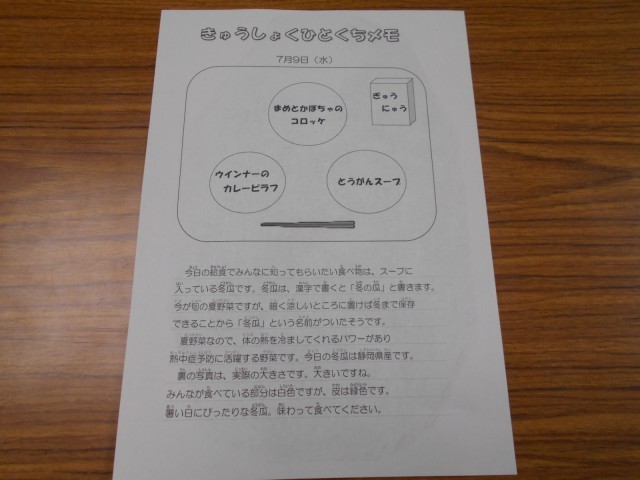 きゅうしょくひとくちメモ
7月9日（水）
まめとかぼちゃの
コロッケ
ぎゅう
にゅう
ウインナーの
カレーピラフ
とうがんスープ
今日の給食でみんなに知ってもらいたい食べ物は、スープに
入っている冬瓜です。冬瓜は、漢字で書くと「冬の瓜」と書きます。
今が旬の夏野菜ですが、暗く涼しいところに置けば冬まで保存
できることから「冬瓜」という名前がついたそうです。
夏野菜なので、体の熱を冷ましてくれるパワーがあり
熱中症予防に活躍する野菜です。今日の冬瓜は静岡県産です。
裏の写真は、実際の大きさです。大きいですね。
みんなが食べている部分は白色ですが、皮は緑色です。
暑い日にぴったりな冬瓜。味わって食べてください。